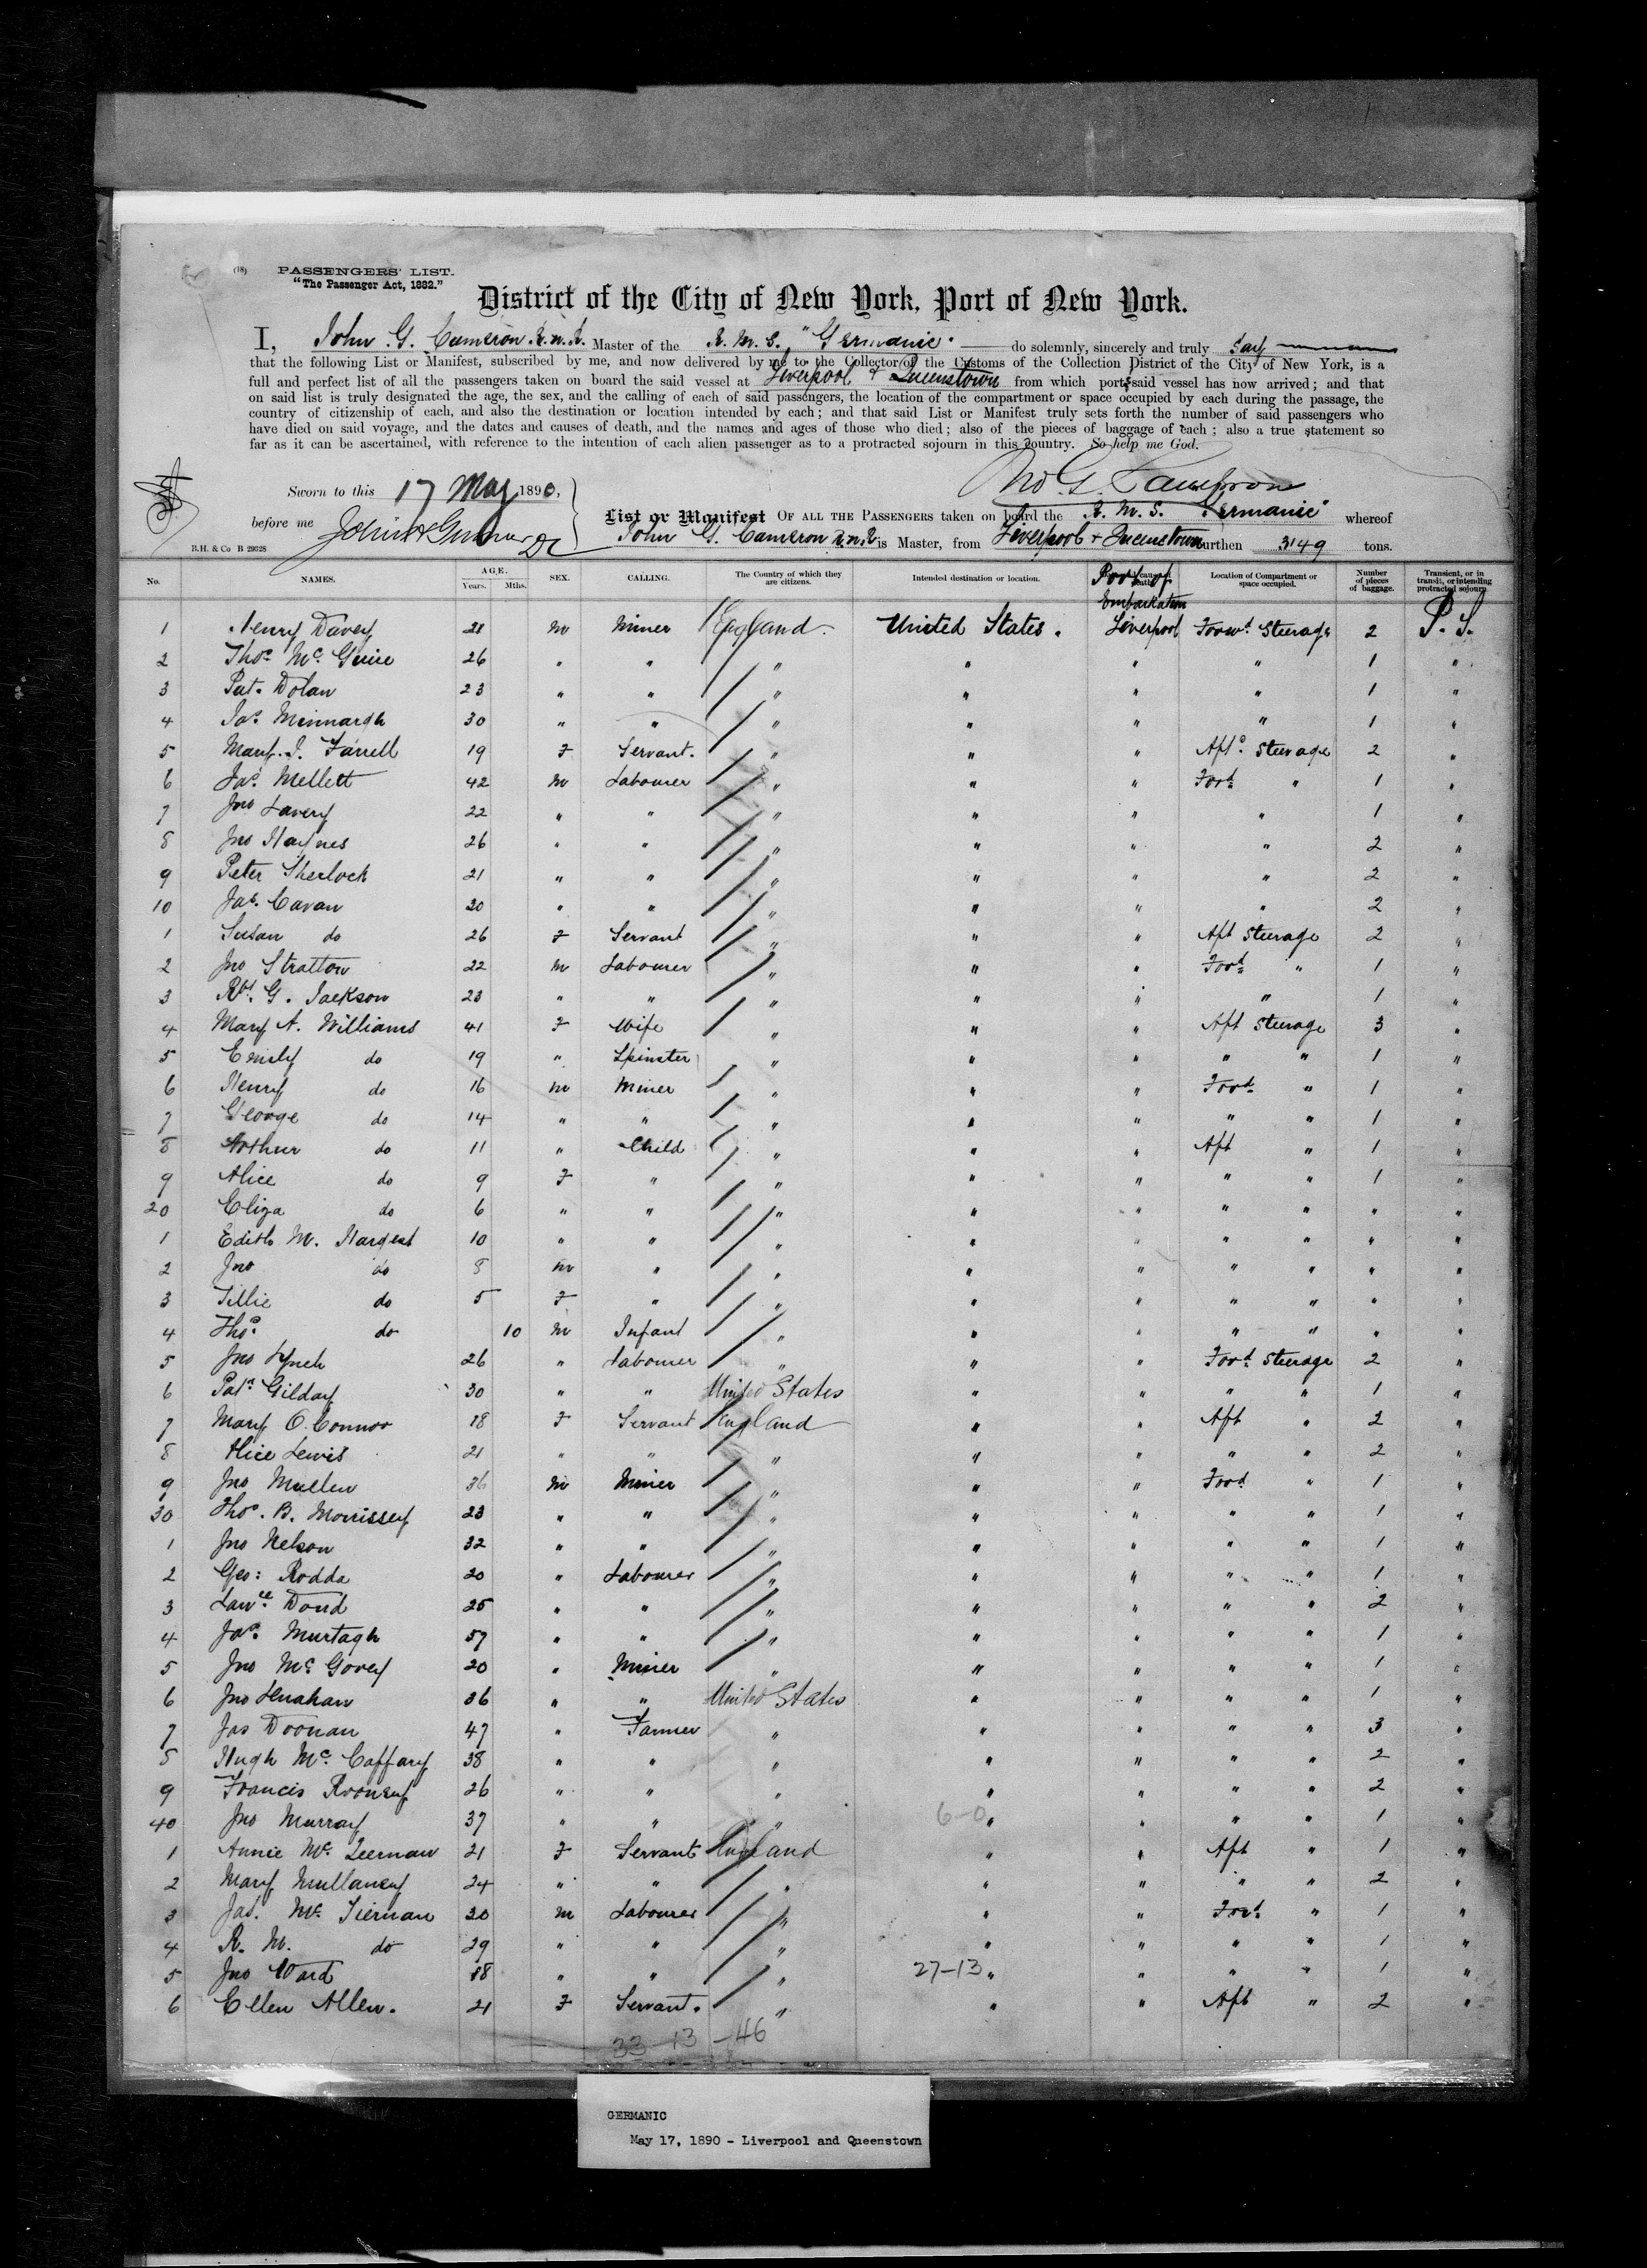 (18)
PASSENGERS' LIST.
"The Passenger Act, 1882."
District of the City of New York, Port of New York.
I, John G. Cameron R.N.R. Master of the R.M.S. "Germanic" do solemnly, sincerely and truly Say
that the following List or Manifest, subscribed by me, and now delivered by me to the Collector of the Customs of the Collection District of the City of New York, is a
full and perfect list of all the passengers taken on board the said vessel at Liverpool & Queenstown from which ports said vessel has now arrived; and that
on said list is truly designated the age, the sex, and the calling of each of said passengers, the location of the compartment or space occupied by each during the passage, the
country of citizenship of each, and also the destination or location intended by each; and that said List or Manifest truly sets forth the number of said passengers who
have died on said voyage, and the dates and causes of death, and the names and ages of those who died; also of the pieces of baggage of each; also a true statement so
far as it can be ascertained, with reference to the intention of each alien passenger as to a protracted sojourn in this country. So help me God.
Jno. G. Cameron
Sworn to this 17 May 1890,
before me
List or Manifest OF ALL THE PASSENGERS taken on board the R.M.S. "Germanic" whereof
John G. Cameron R.N.R. is Master, from Liverpool & Queenstown burthen 3149 tons.
B.H. & Co B 29328
No. NAMES. AGE. Years. Mths. SEX. CALLING. The Country of which they are citizens. Intended destination or location. Port of Embarkation Location of Compartment or space occupied. Number of pieces of baggage. Transient, or in transit, or intending protracted sojourn.
1 Henry Davey 21 m Miner England United States. Liverpool Forwd. Steerage 2 P.S.
2 Thos. Mc. Guire 26 " " " " " " 1 "
3 Pat. Dolan 23 " " " " " " 1 "
4 Jas. Minnargh 30 " " " " " " 1 "
5 Mary J. Farrell 19 F Servant. " " " Aft. Steerage 2 "
6 Jas. Mellett 42 m Labourer " " " Ford. " 1 "
7 Jno Lavery 22 " " " " " " 1 "
8 Jno Haynes 26 " " " " " " 2 "
9 Peter Sherlock 21 " " " " " " 2 "
10 Jas. Cavan 30 " " " " " " 2 "
1 Susan do 26 F Servant " " " Aft Steerage 2 "
2 Jno Stratton 22 m Labourer " " " Ford. " 1 "
3 Rbt. G. Jackson 23 " " " " " " 1 "
4 Mary A. Williams 41 F Wife " " " Aft Steerage 3 "
5 Emily do 19 " Spinster " " " " " 1 "
6 Henry do 16 m Miner " " " Ford. " 1 "
7 George do 14 " " " " " " " 1 "
8 Arthur do 11 " Child " " " Aft " 1 "
9 Alice do 9 F " " " " " " 1 "
20 Eliza do 6 " " " " " " " " "
1 Edith M. Hargest 10 " " " " " " " " "
2 Jno do 8 m " " " " " " " "
3 Tillie do 5 F " " " " " " " "
4 Thos. do 10 m Infant " " " " " " "
5 Jno Lynch 26 " Labourer " " " Ford. Steerage 2 "
6 Patk. Gilday 30 " " United States " " " " 1 "
7 Mary O'Connor 18 F Servant England " " Aft " 2 "
8 Alice Lewis 21 " " " " " " " 2 "
9 Jno Mullen 36 m Miner " " " Ford " 1 "
30 Thos. B. Morrissey 23 " " " " " " " 1 "
1 Jno Nelson 32 " " " " " " " 1 "
2 Geo: Rodda 20 " Labourer " " " " " 1 "
3 Lawce. Doud 25 " " " " " " " 2 "
4 Jas. Murtagh 57 " " " " " " " 1 "
5 Jno Mc. Govey 20 " Miner " " " " " 1 "
6 Jno Lenahan 36 " " United States " " " " 1 "
7 Jas Doonan 47 " Farmer " " " " " 3 "
8 Hugh Mc. Caffary 38 " " " " " " " 2 "
9 Francis Rooney 26 " " " " " " " 2 "
40 Jno Murray 37 " " " 6-0 " " " " 1 "
1 Annie Mc. Teernan 21 F Servant England " " Aft " 1 "
2 Mary Mullaney 24 " " " " " " " 2 "
3 Jas. Mc. Tiernan 30 m Labourer " " " Ford. " 1 "
4 R. M. do 29 " " " " " " " 1 "
5 Jno Ward 18 " " " 27-13 " " " " 1 "
6 Ellen Allen. 21 F Servant. " " " Aft " 2 "
33-13-46
GERMANIC
May 17, 1890 - Liverpool and Queenstown